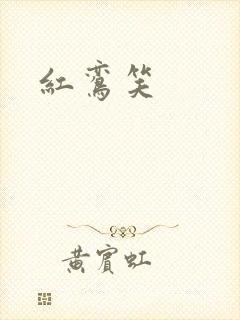 紅鸞笑
黄賓虹